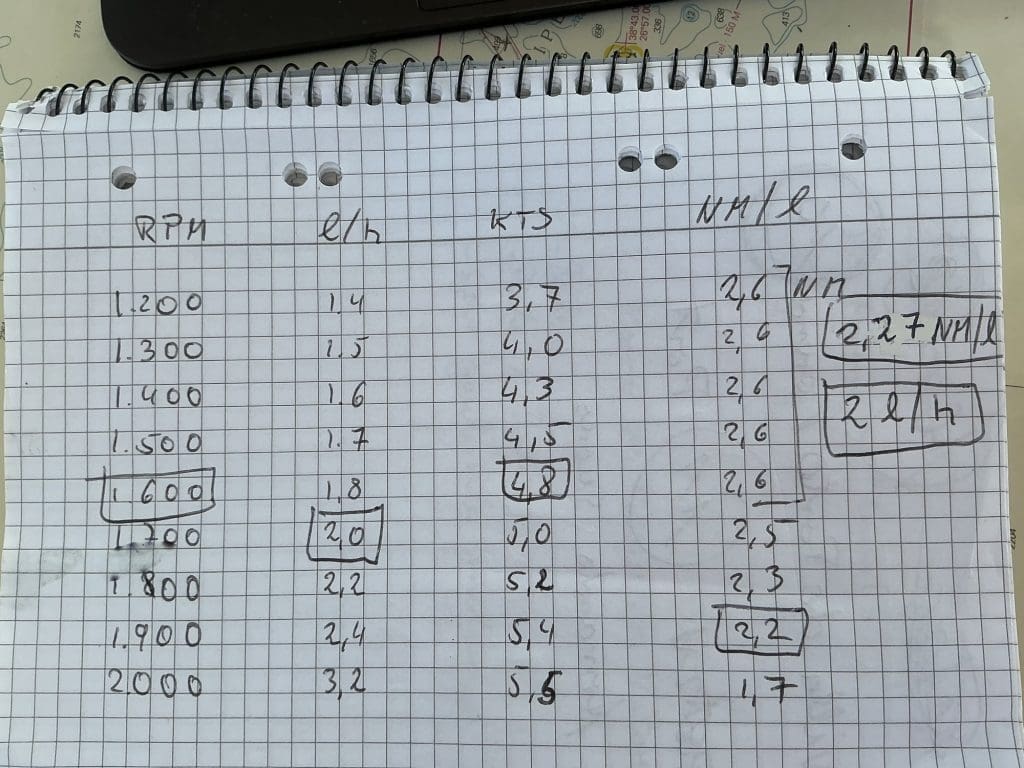 2174
456
463
698
IPE
38°43.0
26°57.00
336
12
638
413
Vel 150 M
RPM l/h KTS NM/l
1.200 1.4 3,7 2,6 NM
1.300 1.5 4,0 2,6 2,27 NM/l
1.400 1.6 4,3 2,6 2 l/h
1.500 1.7 4,5 2,6
1.600 1,8 4,8 2,6
1.700 2,0 5,0 2,5
1.800 2,2 5,2 2,3
1.900 2,4 5,4 2,2
2.000 3,2 5,5 1,7